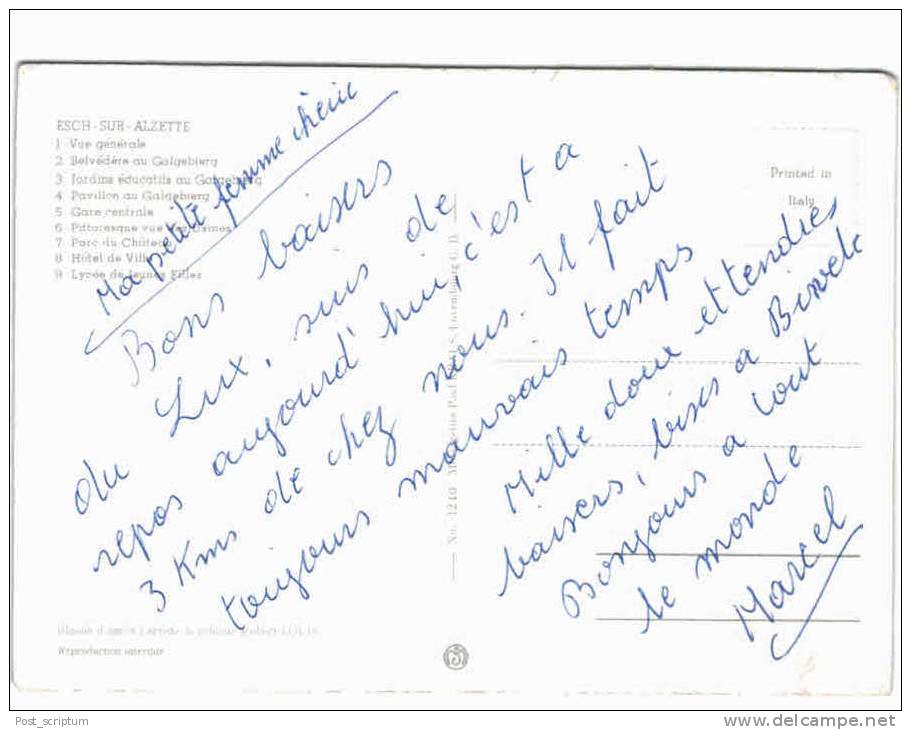 ESCH-SUR-ALZETTE
1 Vue générale
2 Belvédère au Galgebierg
3 Jardins éducatifs au Galgebierg
4 Pavillon au Galgebierg
5 Gare centrale
6 Pittoresque vue des Usines
7 Parc du Château
8 Hôtel de Ville
9 Lycée de Jeunes Filles
Printed in
Italy
Ma petite femme chérie
Bons baisers
du Lux, suis de
repos aujourd'hui, c'est a
3 Kms de chez nous. Il fait
toujours mauvais temps
Mille doux et tendres
baisers, bises a
Bonjours a tout
le monde
Marcel
No. 1210
Luxembourg G. D.
Reproduction interdite
Post_scriptum
www.delcampe.net